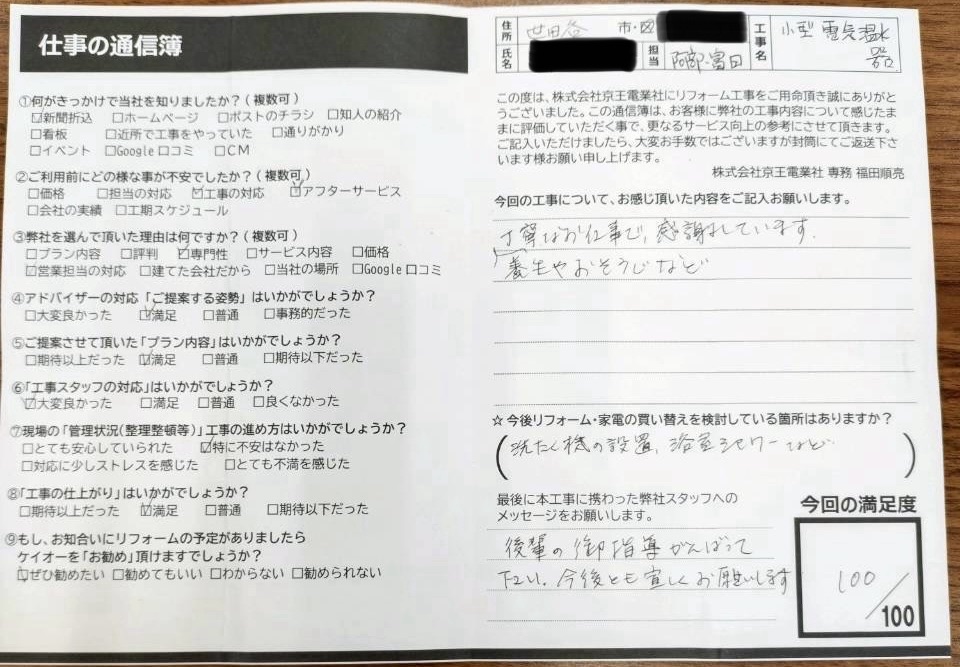 仕事の通信簿
①何がきっかけで当社を知りましたか？（複数可）
☑新聞折込 □ホームページ □ポストのチラシ □知人の紹介
□看板 □近所で工事をやっていた □通りがかり
□イベント □Google口コミ □CM
②ご利用前にどの様な事が不安でしたか？（複数可）
□価格 □担当の対応 ☑工事の対応 ☑アフターサービス
□会社の実績 □工期スケジュール
③弊社を選んで頂いた理由は何ですか？（複数可）
□プラン内容 □評判 ☑専門性 □サービス内容 □価格
☑営業担当の対応 □建てた会社だから □当社の場所 □Google口コミ
④アドバイザーの対応「ご提案する姿勢」はいかがでしょうか？
□大変良かった ☑満足 □普通 □事務的だった
⑤ご提案させて頂いた「プラン内容」はいかがでしょうか？
□期待以上だった ☑満足 □普通 □期待以下だった
⑥「工事スタッフの対応」はいかがでしょうか？
☑大変良かった □満足 □普通 □良くなかった
⑦現場の「管理状況（整理整頓等）」工事の進め方はいかがでしょうか？
□とても安心していられた ☑特に不安はなかった
□対応に少しストレスを感じた □とても不満を感じた
⑧「工事の仕上がり」はいかがでしょうか？
□期待以上だった ☑満足 □普通 □期待以下だった
⑨もし、お知合いにリフォームの予定がありましたら
ケイオーを「お勧め」頂けますでしょうか？
☑ぜひ勧めたい □勧めてもいい □わからない □勧められない
住所 世田谷 市・区
氏名 担当 阿部・富田
工事名 小型電気温水器
この度は、株式会社京王電業社にリフォーム工事をご用命頂き誠にありがと
うございました。この通信簿は、お客様に弊社の工事内容について感じたま
まに評価していただく事で、更なるサービス向上の参考にさせて頂きます。
ご記入いただけましたら、大変お手数ではございますが封筒にてご返送下さ
います様お願い申し上げます。
株式会社京王電業社 専務 福田順亮
今回の工事について、お感じ頂いた内容をご記入お願いします。
丁寧なお仕事で、感謝しています。
養生やおそうじなど
☆今後リフォーム・家電の買い替えを検討している箇所はありますか？
（洗たく機の設置、浴室シャワーなど）
最後に本工事に携わった弊社スタッフへの
メッセージをお願いします。
後輩の御指導がんばって
下さい。今後とも宜しくお願いします
今回の満足度
100/100